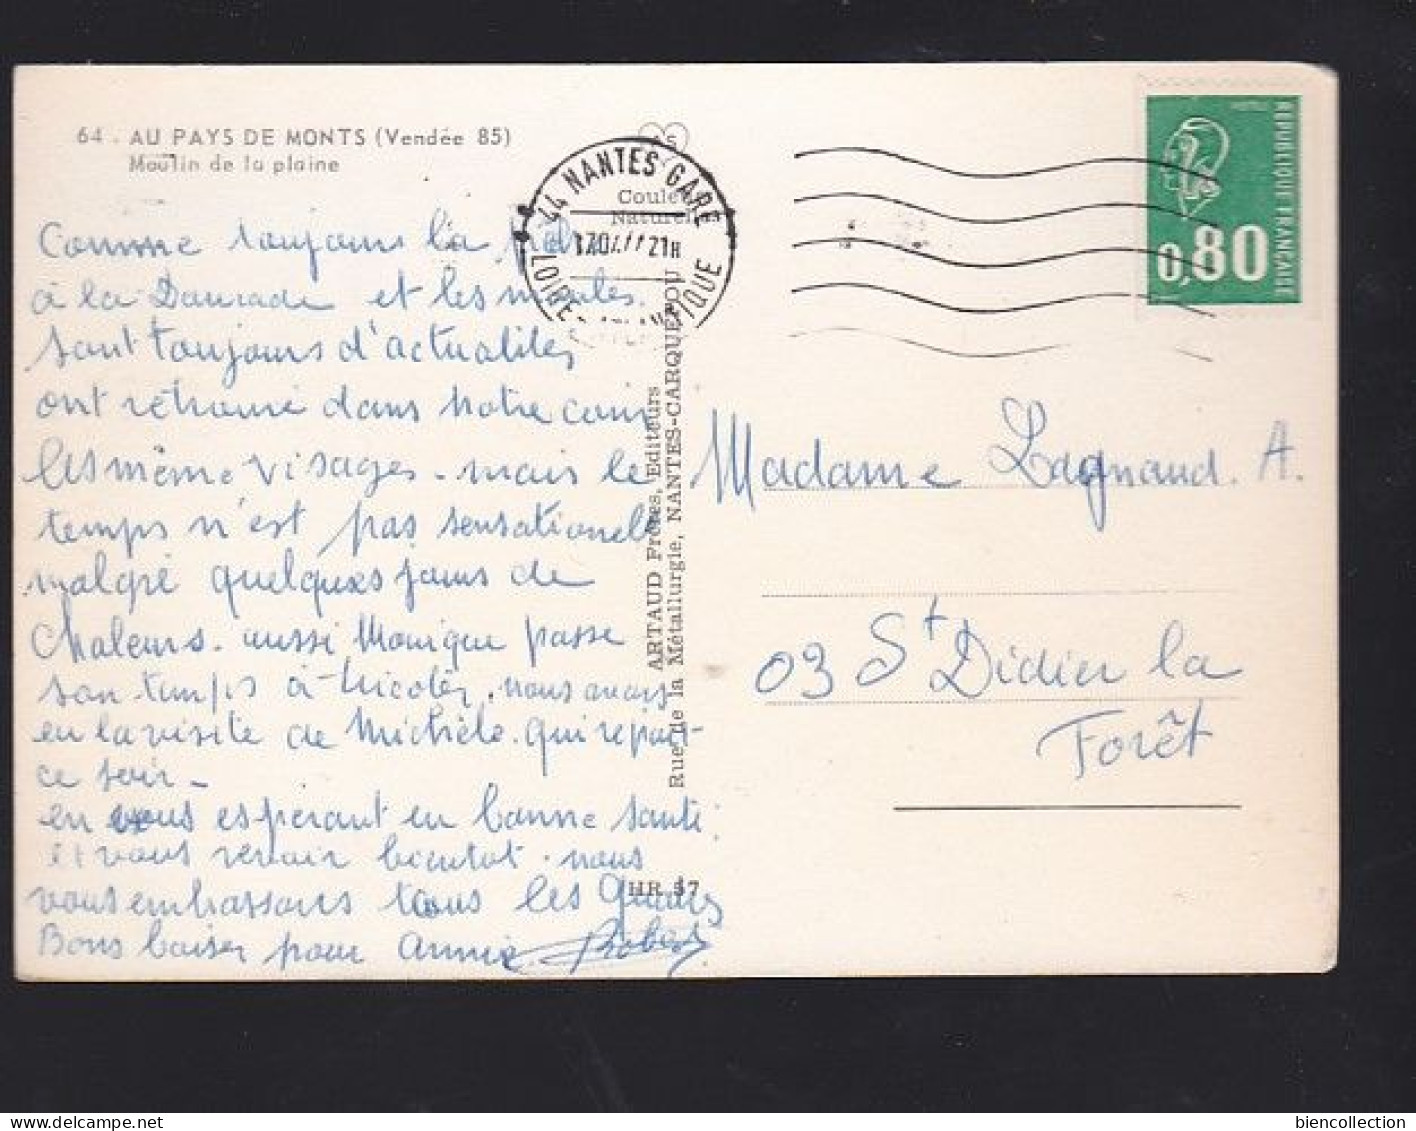 64 . AU PAYS DE MONTS (Vendée 85)
Moulin de la plaine
Comme toujours la
à la Daurade et les moules.
sont toujours d'actualités
ont retrouvé dans notre coin
les même visages - mais le
temps n'est pas sensationnel
malgré quelques jours de
chaleurs. aussi Monique passe
son temps à tricoter. nous avons
eu la visite de Michèle. qui repart
ce soir -
en vous espérant en bonne santé.
et vous revoir bientot. nous
vous embrassons tous les quatres
Bons baiser pour Annie Robert
44 NANTES GARE
21H
LOIRE-ATLANTIQUE
Couleurs
Naturelles
ARTAUD Frères, Editeurs
Rue de la Métallurgie, NANTES-CARQUEFOU
HR 57
REPUBLIQUE FRANÇAISE
0,80
Madame Lagnaud. A.
03 St Didier la
Forêt
biencollection